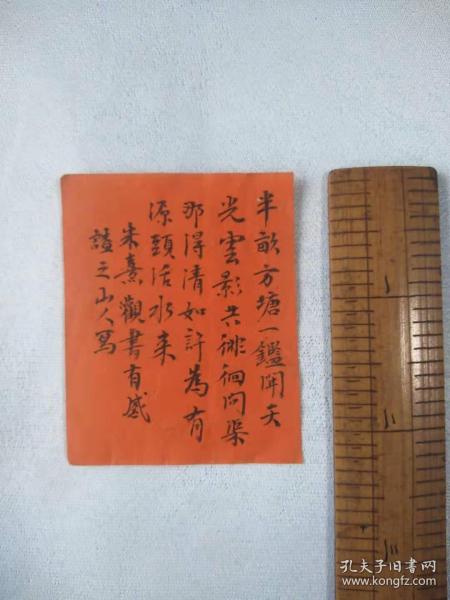 半畝方塘一鑑開天
光雲影共徘徊問渠
那得清如許為有
源頭活水来
朱熹觀書有感
山人写
一
二
三
孔夫子旧书网
www.kongfz.com